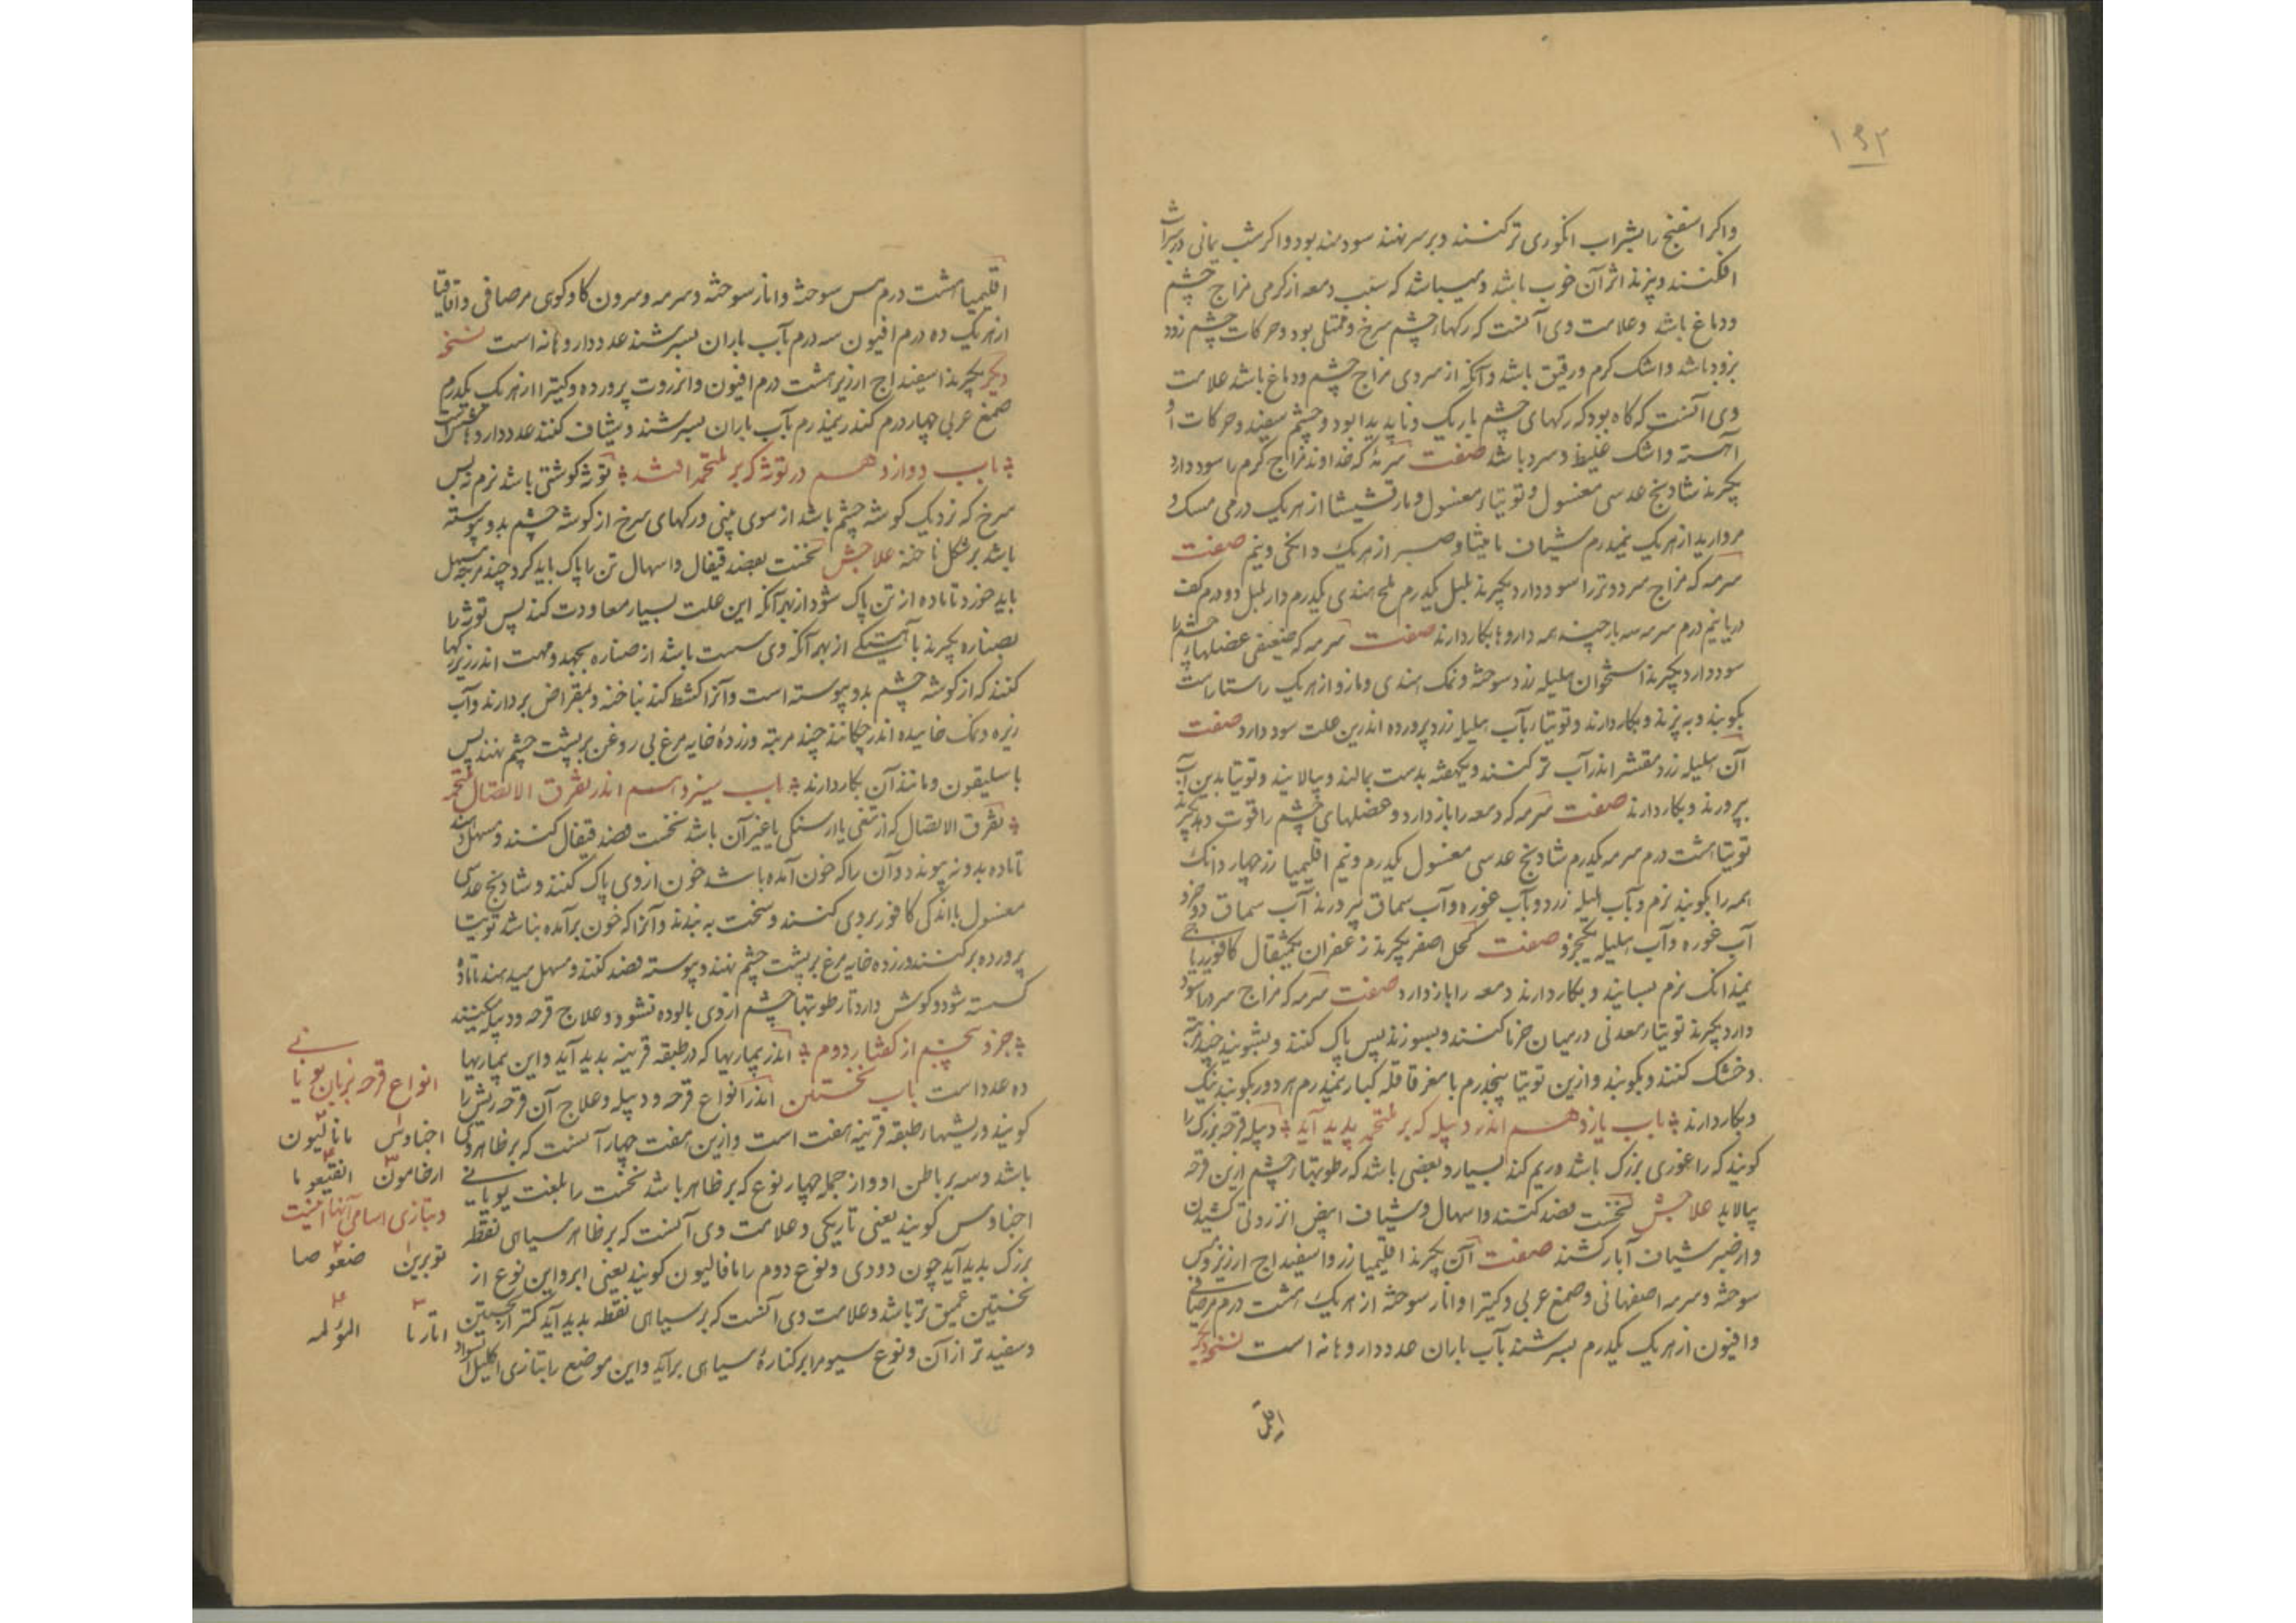 ۱۶۲
واکر اسفنج را بشراب انکوری تر کنند و برسر نهند سودمند بود واکر شب یمانی در شراب
افکنند و بپزند اثر آن خوب باشد و میباشد که سبب دمعه از کرمی مزاج چشم
ودماغ باشد وعلامت وی آنست که رکهاء چشم سرخ وممتلی بود وحرکات چشم زود
بزود باشد واشک کرم ورقیق باشد وآنکه از سردی مزاج چشم ودماغ باشد علامت
وی آنست که کاه بود که رکهای چشم باریک وناپدیدا بود وچشم سفید وحرکات او
آهسته واشک غلیظ وسرد باشد صفت سرمهٔ که خداوند مزاج کرم را سود دارد
بکیرند شادنج عدسی مغسول وتوتیاء مغسول ومارقشیشا از هریک درمی مسک و
مروارید از هریک نیمدرم شیاف مامیثا وصبر از هریک دانکی ونیم صفت
سرمه که مزاج سرد وتر را سود دارد بکیرند بلبل یکدرم ملح هندی یکدرم دار بلبل دو درم کف
دریا نیم درم سرمه سه بار چند همه داروها بکار دارند صفت سرمه که ضعیفی عضلهاء چشم را
سود دارد بکیرند استخوان هلیله زرد سوخته ونمک هندی ومازو از هریک راستا راست
بکوبند وبه پزند وبکار دارند وتوتیا بآب هلیله زرد پرورده اندرین علت سود دارد صفت
آن هلیله زرد مقشر اندر آب تر کنند ویکهفته بدست بمالند وبپالایند وتوتیا بدین آب
بپرورند وبکار دارند صفت سرمه که دمعه را باز دارد وعضلهای چشم را قوت دهد بکیرند
توتیا هشت درم سرمه یکدرم شادنج عدسی مغسول یکدرم ونیم اقلیمیا زر چهار دانک
همه را بکوبند نرم وبآب هلیله زرد وبآب غوره وآب سماق بپرورند آب سماق دو جزو
آب غوره وآب هلیله یکجزو صفت کحل اصفر بکیرند زعفران یکمثقال کافور ریاحی
نیمدانک نرم بسایند وبکار دارند دمعه را باز دارد صفت سرمه که مزاج سرد را سود
دارد بکیرند توتیاء معدنی درمیان خرما کنند وبسوزند پس پاک کنند وبشویند چند مرتبه
وخشک کنند وبکوبند وازین توتیا پنجدرم با مغز قاقله کبار نیمدرم هر دو را بکوبند نیک
وبکار دارند باب یازدهم اندر دبیله که بر ملتحمه پدید آید دبیله قرحه بزرک را
کویند که را غوری بزرک باشد وریم کند بسیار وبعضی باشد که رطوبتهاء چشم ازین قرحه
بپالاید علاجش نخست فصد کنند واسهال وشیاف ابیض انزروتی کشیدن
واز خبر شیاف آبار کشند صفت آن بکیرند اقلیمیا زر واسفیداج ارزیز ومس
سوخته وسرمه اصفهانی وصمغ عربی وکتیرا وانار سوخته از هریک هشت درم مر صافی
وافیون از هریک یکدرم بسرشند بآب باران عدد داروها نه است نسخه دیکر
اقلیمیا هشت درم مس سوخته وانار سوخته وسرمه وسرون کاو کوی مر صافی واقاقیا
از هریک ده درم افیون سه درم بآب باران بسرشند عدد داروها نه است نسخه
دیکر بکیرند اسفیداج ارزیز هشت درم افیون وانزروت پرورده وکتیرا از هریک یکدرم
صمغ عربی چهار درم کندر نیمدرم بآب باران بسرشند وشیاف کنند عدد داروها شش است
باب دوازدهم در توثه که بر ملتحمه افتد توثه کوشتی باشد نرم نه پس
سرخ که نزدیک کوشه چشم باشد از سوی بینی ورکهای سرخ از کوشه چشم بدو پیوسته
باشد بر شکل ناخنه علاجش نخست بفصد قیفال واسهال تن را پاک باید کرد چند مرتبه مسهل
باید خورد تا ماده از تن پاک شود از بهر آنکه این علت بسیار معاودت کند پس توثه را
بصناره بکیرند بآهستکی از بهر آنکه وی سست باشد از صناره بجهد وجهت اندر زیر رکها
کنند که از کوشه چشم بدو پیوسته است وآنرا کشط کند بناخنه وبمقراض بردارند وآب
زیره ونمک خاییده اندر چکانند چند مرتبه وزردهٔ خایه مرغ بی روغن بر پشت چشم نهند پس
باسلیقون ومانند آن بکار دارند باب سیزدهم اندر تفرق الاتصال ملتحمه
تفرق الاتصال که از تیغی یا از سنکی یا غیر آن باشد نخست فصد قیفال کنند ومسهل دهند
تا ماده بدو نه پیوندد وآن را که خون آمده باشد خون از وی پاک کنند وشادنج عدسی
مغسول با اندکی کافور بر وی کنند وسخت به بندند وآنرا که خون بر آمده نباشد توتیا
پرورده بر کنند وزرده خایه مرغ بر پشت چشم نهند وپیوسته فصد کنند ومسهل میدهند تا ماده
کسسته شود وکوش دارد تا رطوبتها چشم از وی بالوده نشود وعلاج قرحه ودبیله میکنند
جزو پنجم از کفتار دوم اندر بیماریها که در طبقه قرنیه پدید آید واین بیماریها
ده عدد است باب نخستین اندر انواع قرحه ودبیله وعلاج آن قرحه ریش را
کویند وریشهاء طبقه قرنیه هفت است وازین هفت چهار آنست که بر ظاهر وی
باشد وسه بر باطن او واز جمله چهار نوع که بر ظاهر باشد نخست را بلغت یونانی
اخناوس کویند یعنی تاریکی وعلامت وی آنست که بر ظاهر سیاهی نقطه
بزرک پدید آید چون دودی ونوع دوم را نافالیون کویند یعنی ابر واین نوع از
نخستین عمیق تر باشد وعلامت وی آنست که بر سیاهی نقطه پدید آید کمتر از نخستین
وسفیدتر از آن ونوع سیوم را بر کنارهٔ سیاهی بر آید واین موضع را بتازی اکلیل السواد
انواع قرحه بزبان یونانی
اخناوس نافالیون
ارضامون انفیعوما
وبتازی اسامی آنها اینست